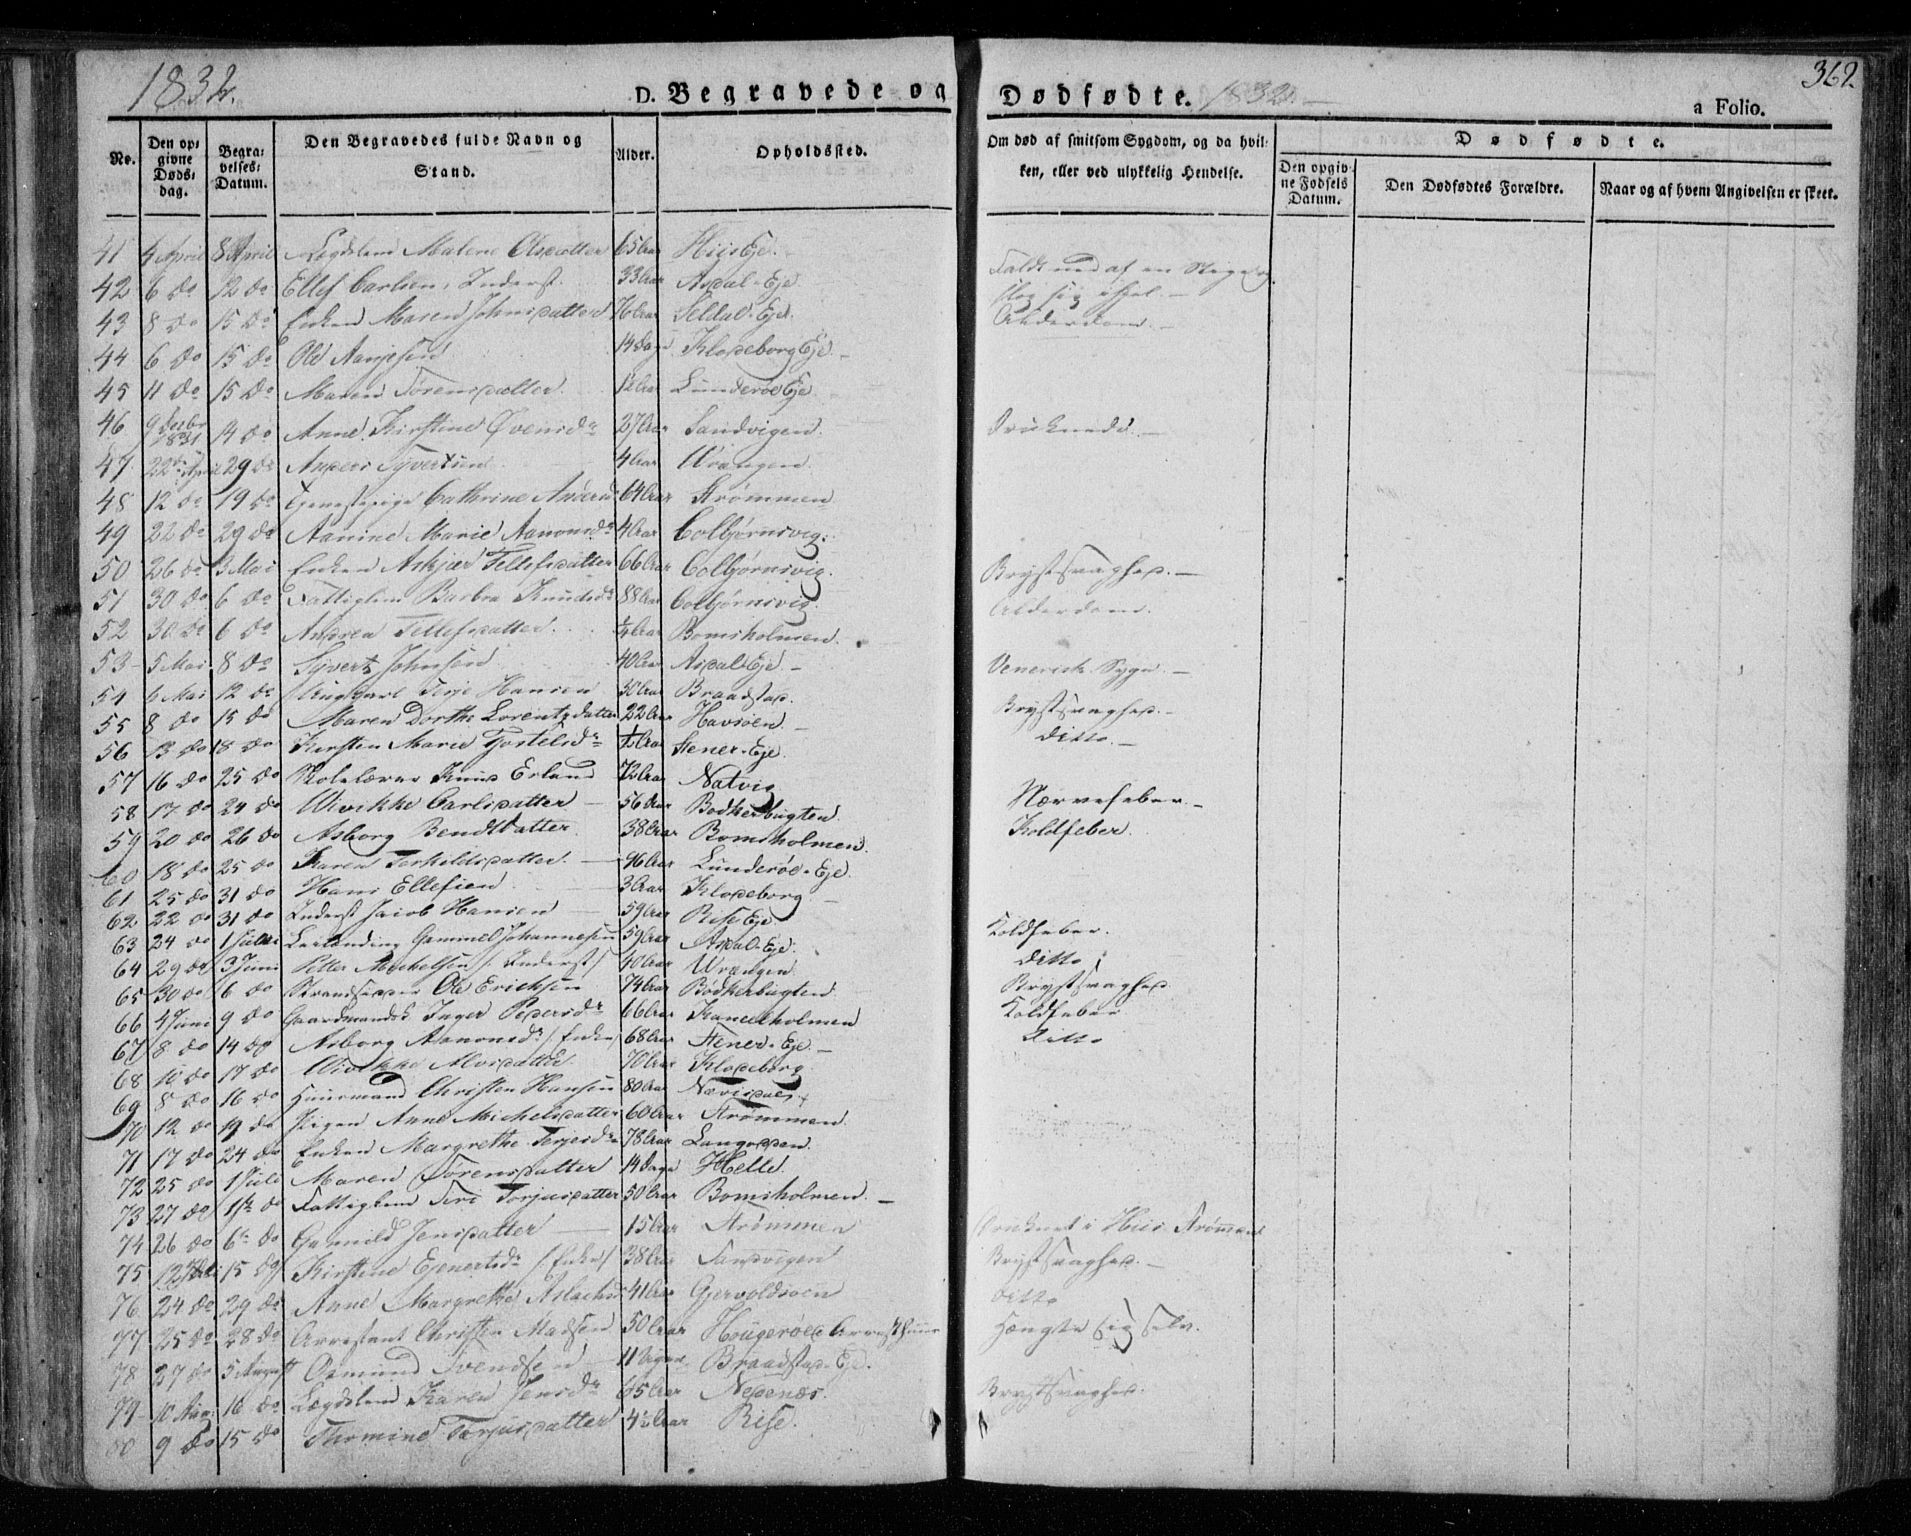 1832.
D. Begravede og Dødfødte. 1832.
362
a Folio.
No.
Den op-
givne
Døds-
dag.
Begra-
velses-
Datum.
Den Begravedes fulde Navn og
Stand.
Alder.
Opholdssted.
Om død af smitsom Sygdom, og da hvil-
ken, eller ved ulykkelig Hendelse.
Dødfødte.
Den opgiv-
ne Fødsels
Datum.
Den Dødfødtes Forældre.
Naar og af hvem Angivelsen er skeet.
41 4 April 8 April Lægdslem Malene Olsdatter 65 Aar Hiis Eje.
42 6 do 12 do Ellef Carlsen, Inderst. 33 Aar Asdal-Eje Faldt ned af en Stige og
slog sig ihjel. -
43 8 do 15 do Enken Maren Johnsdatter 76 Aar Seldal-Eje. Alderdom. -
44 6 do 15 do Ole Aanesen 14 Dage Klodeborg Eje. -
45 11 do 15 do Maren Sørensdatter. 12 Aar Lunderøe Eje
46 9 Decbr 1831 14 do Anne Kirstine Svensdr 27 Aar Sandvigen. Druknede. -
47 22de April 29 do Anders Syvertsen 4 Aar Vrangen.
48 12 do 19 do Tjenestepige Cathrine Andersd 64 Aar Strømmen
49 22 do 29 do Aanine Marie Aanonsdr 4 Aar Colbjørnsvig.
50 26 do 3 Mai Enken Askjær Tellefsdatter 66 Aar Colbjørnsvig. Brystsvaghed. -
51 30 do 6 do Fattiglem Barbra Knudsdr 88 Aar Colbjørnsvig. Alderdom.
52 30 do 6 do Andrea Tellefsdatter. 1/4 Aar Bomsholmen.
53 5 Mai 8 do Syvert Johnsen 40 Aar Asdal-Eje - Venerisk Syge. -
54 6 Mai 12 do Ungkarl Terje Hansen 30 Aar Braadstad. Brystsvaghed. -
55 8 do 15 do Maren Dorthe Lorentzdatter 22 Aar Havsøen. - ditto. -
56 13 do 18 do Kirsten Marie Gostelsdr 1/2 Aar Stener-Eje.
57 16 do 25 do Skolelærer Knud Erland 72 Aar Natvig Nærvefeber. -
58 17 do 24 do Wivikke Carlsdatter - 56 Aar Bødkerbugten. Koldfeber.
59 20 do 26 do Asborg Bendtsdatter. 38 Aar Bomsholmen.
60 18 do 25 do Karen Terkildsdatter. - 96 Aar Lunderøe-Eje.
61 25 do 31 do Hans Ellefsen. 3 Aar Klodeborg -
62 22 do 31 do Inderst Jacob Hansen - 59 Aar Rise Eje Koldfeber.
63 24 do 1 Juni Gammel Johannesen 59 Aar Asdal-Eje. ditto
64 29 do 3 Juni Petter Michelsen / Inderst / 40 Aar Wrangen Brystsvaghed
65 30 do 6 do Strandsidder Ole Ericksen 74 Aar Bødkerbugten Koldfeber
66 4 Juni 9 do Gaardmandsk Inger Pedersdr 66 Aar Kanelholmen ditto
67 8 do 14 do Asborg Aanonsdr / Enke / 68 Aar Stener-Eje. -
68 10 do 17 do Wivikke Alvsdatter. 70 Aar Klodeborg.
69 8 do 16 do Huusmand Christen Hansen 80 Aar Nævisdal.
70 12 do 19 do Pigen Anne Michelsdatter 60 Aar Strømmen
71 17 do 24 do Enken Margrethe Terjesdr 78 Aar Langodden
72 25 do 1 Juli Maren Sørensdatter 14 Dage Helle.
73 27 do 1ste do Fattiglem Siri Torjusdatter 50 Aar Bomsholmen. -
74 26 do 6te do Gunnild Jensdatter - 15 Aar Strømmen Druknet i Hiis Strømmen
75 12 Juli 15 do Kirstine Ejvertsdr / Enke / 38 Aar Sandvigen Brystsvaghed. -
76 24 do 29 do Anne Margrethe Aslachsd 41 Aar Gjervoldsøen ditto
77 25 do 28 do Arrestant Christen Madsen 50 Aar Hougerøens Arresthuus Hængte sig selv.
78 27 do 5 August Osmund Svendsen 11 Uger Braadstad-Eje.
79 10 Aug: 16 do Lægdslem Karen Jensdr 65 Aar Nedenæs. Brystsvaghed.
80 9 do 15 do Thomine Terjusdatter 4 1/2 Aar Rise.